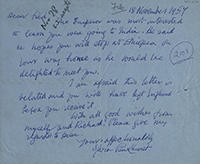 File 18 November 1957
Dear Reg
The Emperor was most interested
to learn you were going to India. He said
he hopes you will stop at Ethiopia on
your way home as he would be
delighted to meet you.
I am afraid this letter is
belated and you will have left England
before you receive it.
With all good wishes from
myself and Richard. Please give my
regards to
yours affectionately
Sylvia Pankhurst